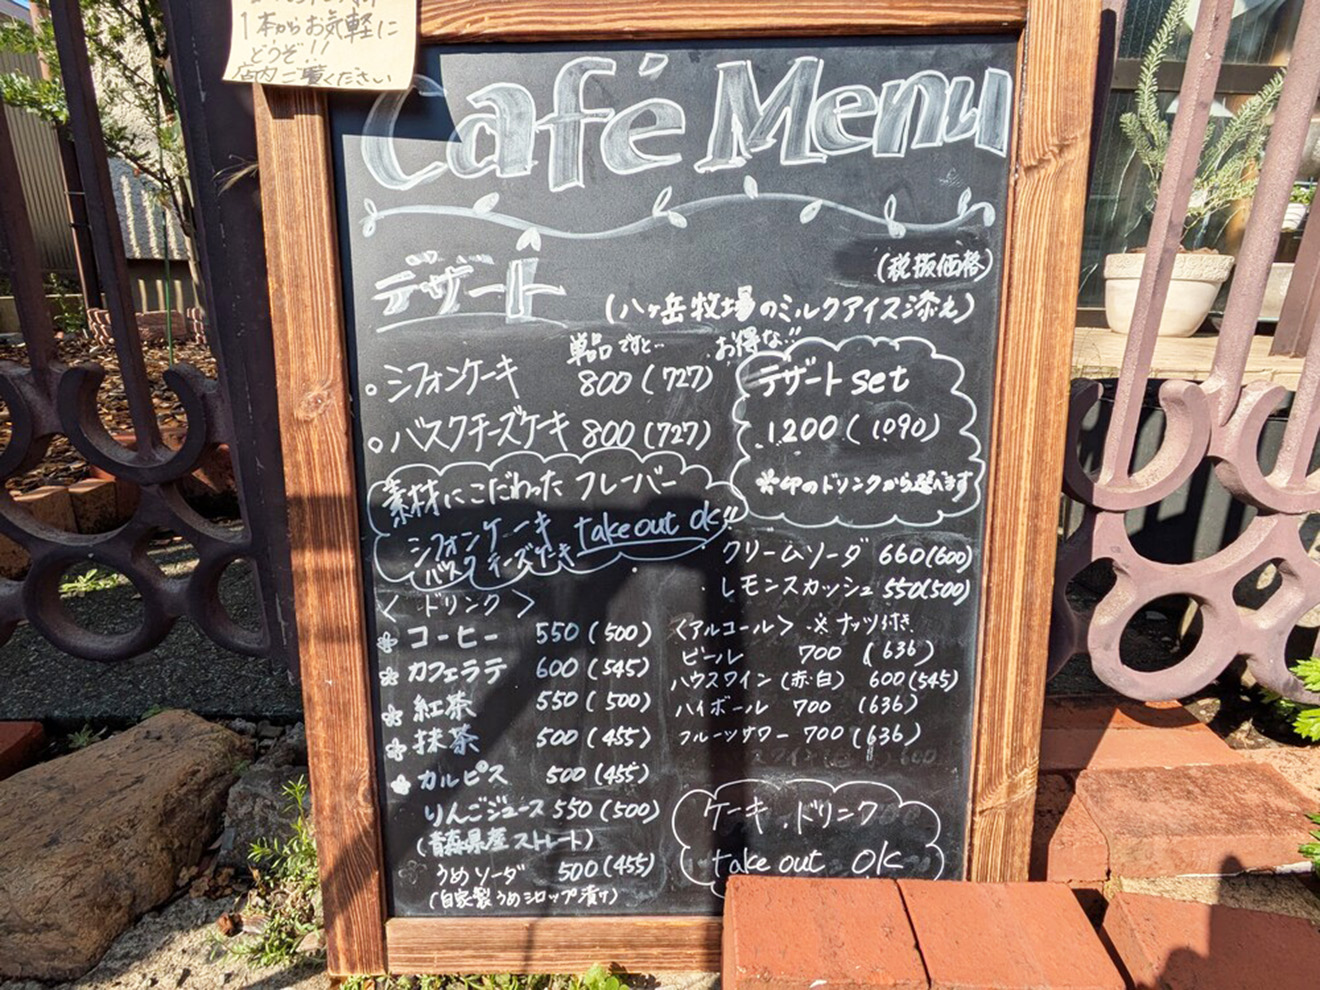 1本からお気軽に
どうぞ!!
店内ご覧ください
Café Menu
(税抜価格)
デザート
(八ヶ岳牧場のミルクアイス添え)
単品ですと… お得な!!
シフォンケーキ 800(727)
バスクチーズケーキ 800(727)
デザートset
1200(1090)
❀印のドリンクから選べます
素材にこだわったフレーバー
シフォンケーキ
バスクチーズケーキ take out ok!!
クリームソーダ 660(600)
レモンスカッシュ 550(500)
<ドリンク>
❀コーヒー 550(500)
❀カフェラテ 600(545)
❀紅茶 550(500)
❀抹茶 500(455)
❀カルピス 500(455)
りんごジュース 550(500)
(青森県産ストレート)
うめソーダ 500(455)
(自家製うめシロップ漬け)
<アルコール> ※ナッツ付き
ビール 700(636)
ハウスワイン(赤・白) 600(545)
ハイボール 700(636)
フルーツサワー 700(636)
ケーキ.ドリンク
take out ok